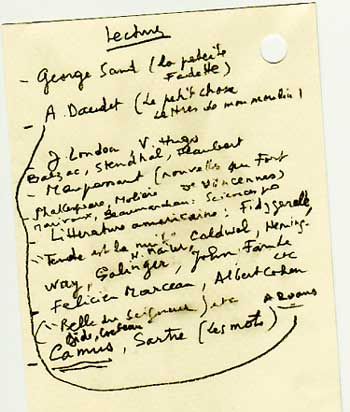 Lectures
- George Sand (la petite
Fadette)
- A. Daudet (Le petit chose
Lettres de mon moulin)
J. London, V. Hugo
Balzac, Stendhal, Flaubert
- Maupassant (nouvelles au Fort
de Vincennes)
- Shakespeare, Molière
Marivaux, Beaumarchais: Sciences po
- Littérature américaine: Fidzgerald,
"Tendre est la nuit", Caldwel, Heming-
N. Mailer,
way, Salinger, John Fante
etc
- Felicien Marceau, Albert Cohen
("Belle du Seigneur") etc
Gide, Cocteau
- Camus, Sartre (les mots)